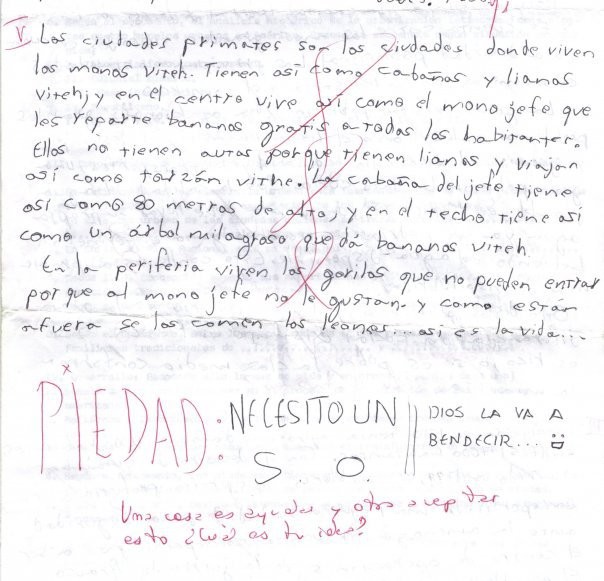 V Las ciudades primates son las ciudades donde viven
los monos viteh. Tienen así como cabañas y lianas
viteh, y en el centro vive así como el mono jefe que
les reparte bananas gratis a todos los habitantes.
Ellos no tienen autos porque tienen lianas y viajan
así como tarzán vithe. La cabaña del jefe tiene
así como 80 metros de alto, y en el techo tiene así
como un árbol milagroso que dá bananas viteh.
En la periferia viven los gorilas que no pueden entrar
porque al mono jefe no le gustan. y como están
afuera se los comen los leones... asi es la vida...
PIEDAD: NECESITO UN
S. O.
DIOS LA VA A
BENDECIR...
Una cosa es ayudar y otra aceptar
esto ¿Cuál es tu idea?